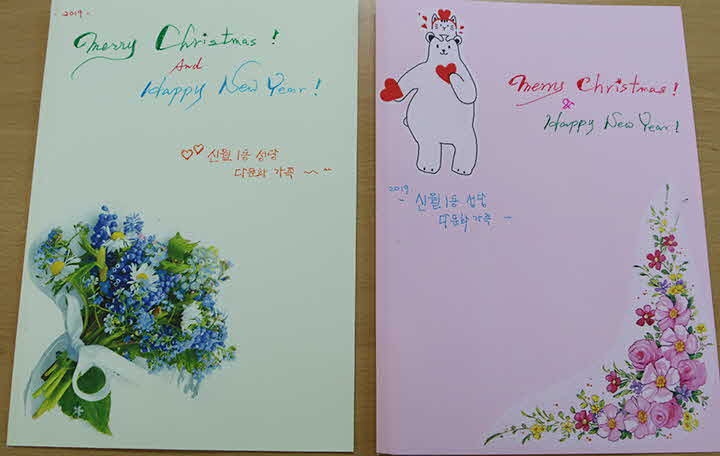 - 2019 -
Merry Christmas !
And
Happy New Year !
♡♡ 신월1동 성당
다문화 가족 ~ ^^
Merry Christmas !
&
Happy New Year !
2019
~ 신월1동 성당
다문화가족 ~